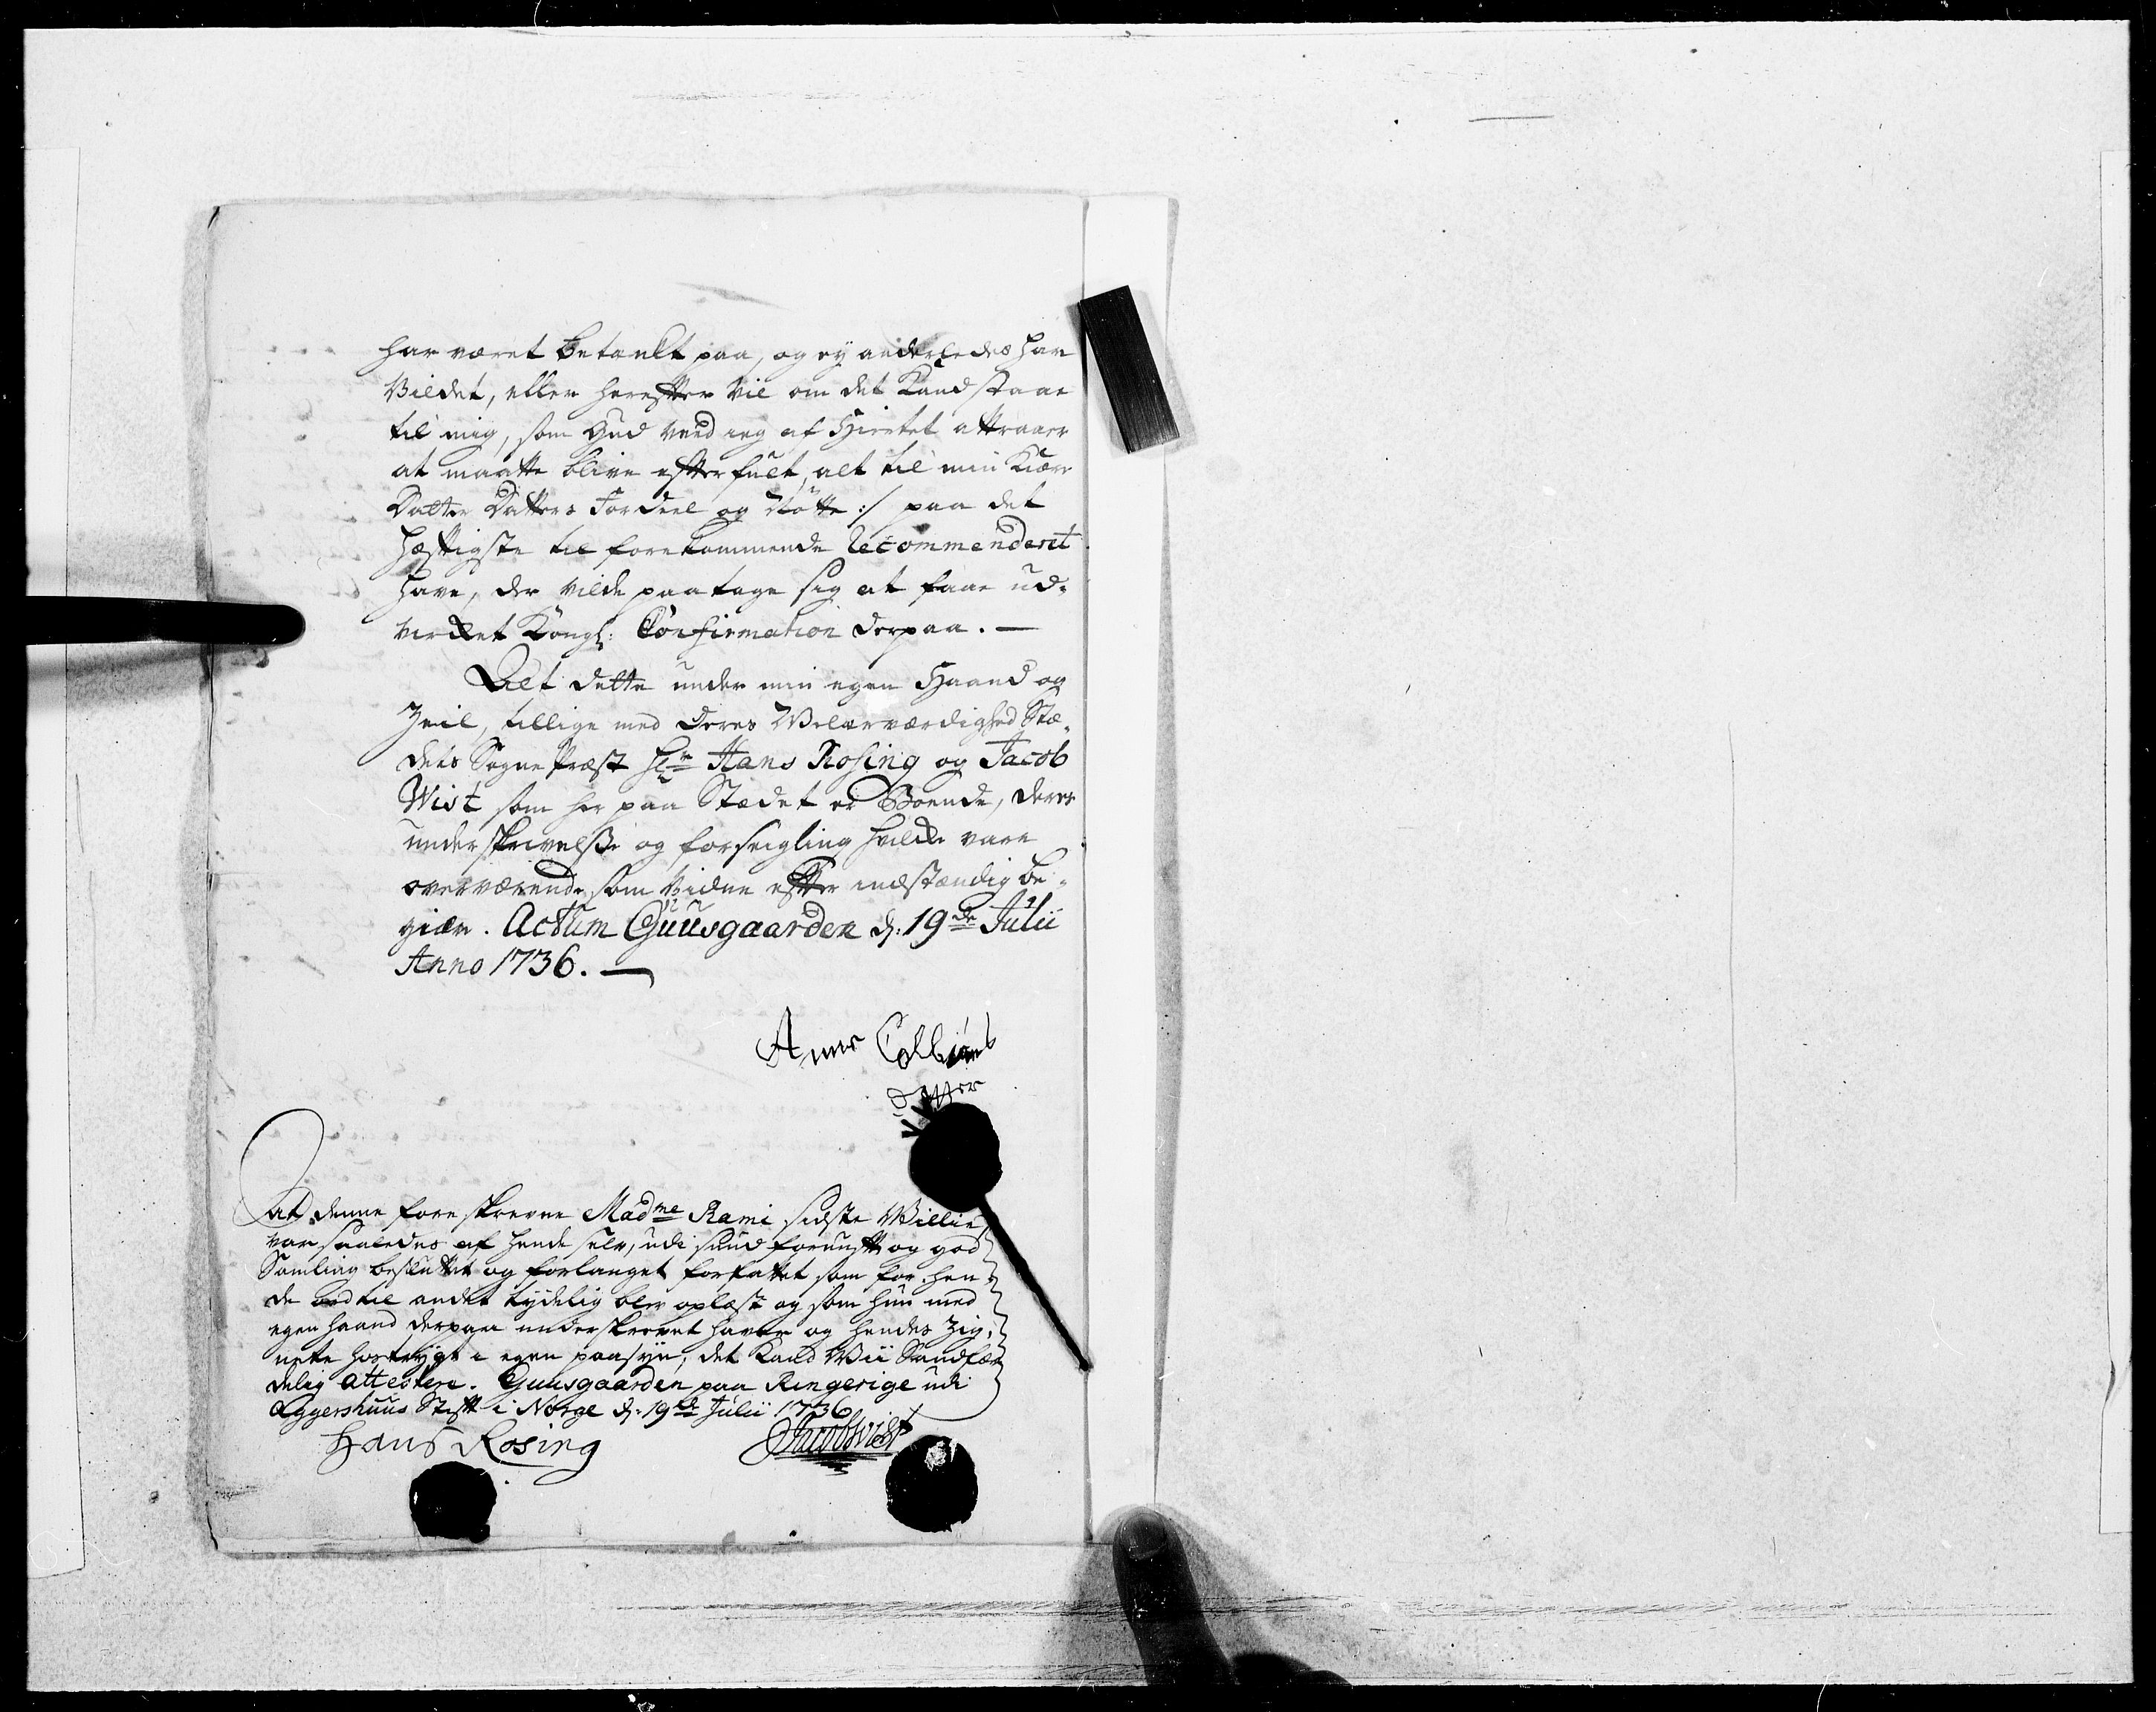 har været betenkt paa, og ey anderledes har
Vildet, eller herefter vil om det Kand staae
til mig, som Gud veed ieg af Hiertet attraaer
at maatte blive efterfult, alt til min Kiære
Datter Datters Fordeel og Nøtte :/ paa det
hæftigste til forekommende Recommenderet
have, der vilde paatage sig at faae ud-
virket Kongl: Confirmation derpaa. —
Alt dette under min egen Haand og
Zeil, tillige med Deres Velærværdighed Stæ-
dets Sogne Præst Hr Hans Rosing og Jacob
Wist som her paa Stædet er Boende, deres
underskrivelsße og forseigling hvilke vare
overværende som Vidne efter indstændig be-
giær. Actum Guusgaarden d: 19de Julii
Anno 1736. —
Anne Colbiørns
datter
At denne foreskrevne Madme Rami sidste Willie
var saaledes af hende selv, udi sund fornuft og god
Samling besluttet og forlanget forfattet som for hen-
de ord til andet tydelig blev oplæst og som hun med
egen haand derpaa underskrevet haver og hendes Zig-
nete hostrygt i egen paasyn, det Kand Wii Sandfær-
delig attestere. Guusgaarden paa Ringerige udi
Aggershuus Stift i Norge d: 19de Julii 1736
Hans Rosing Jacob Wist